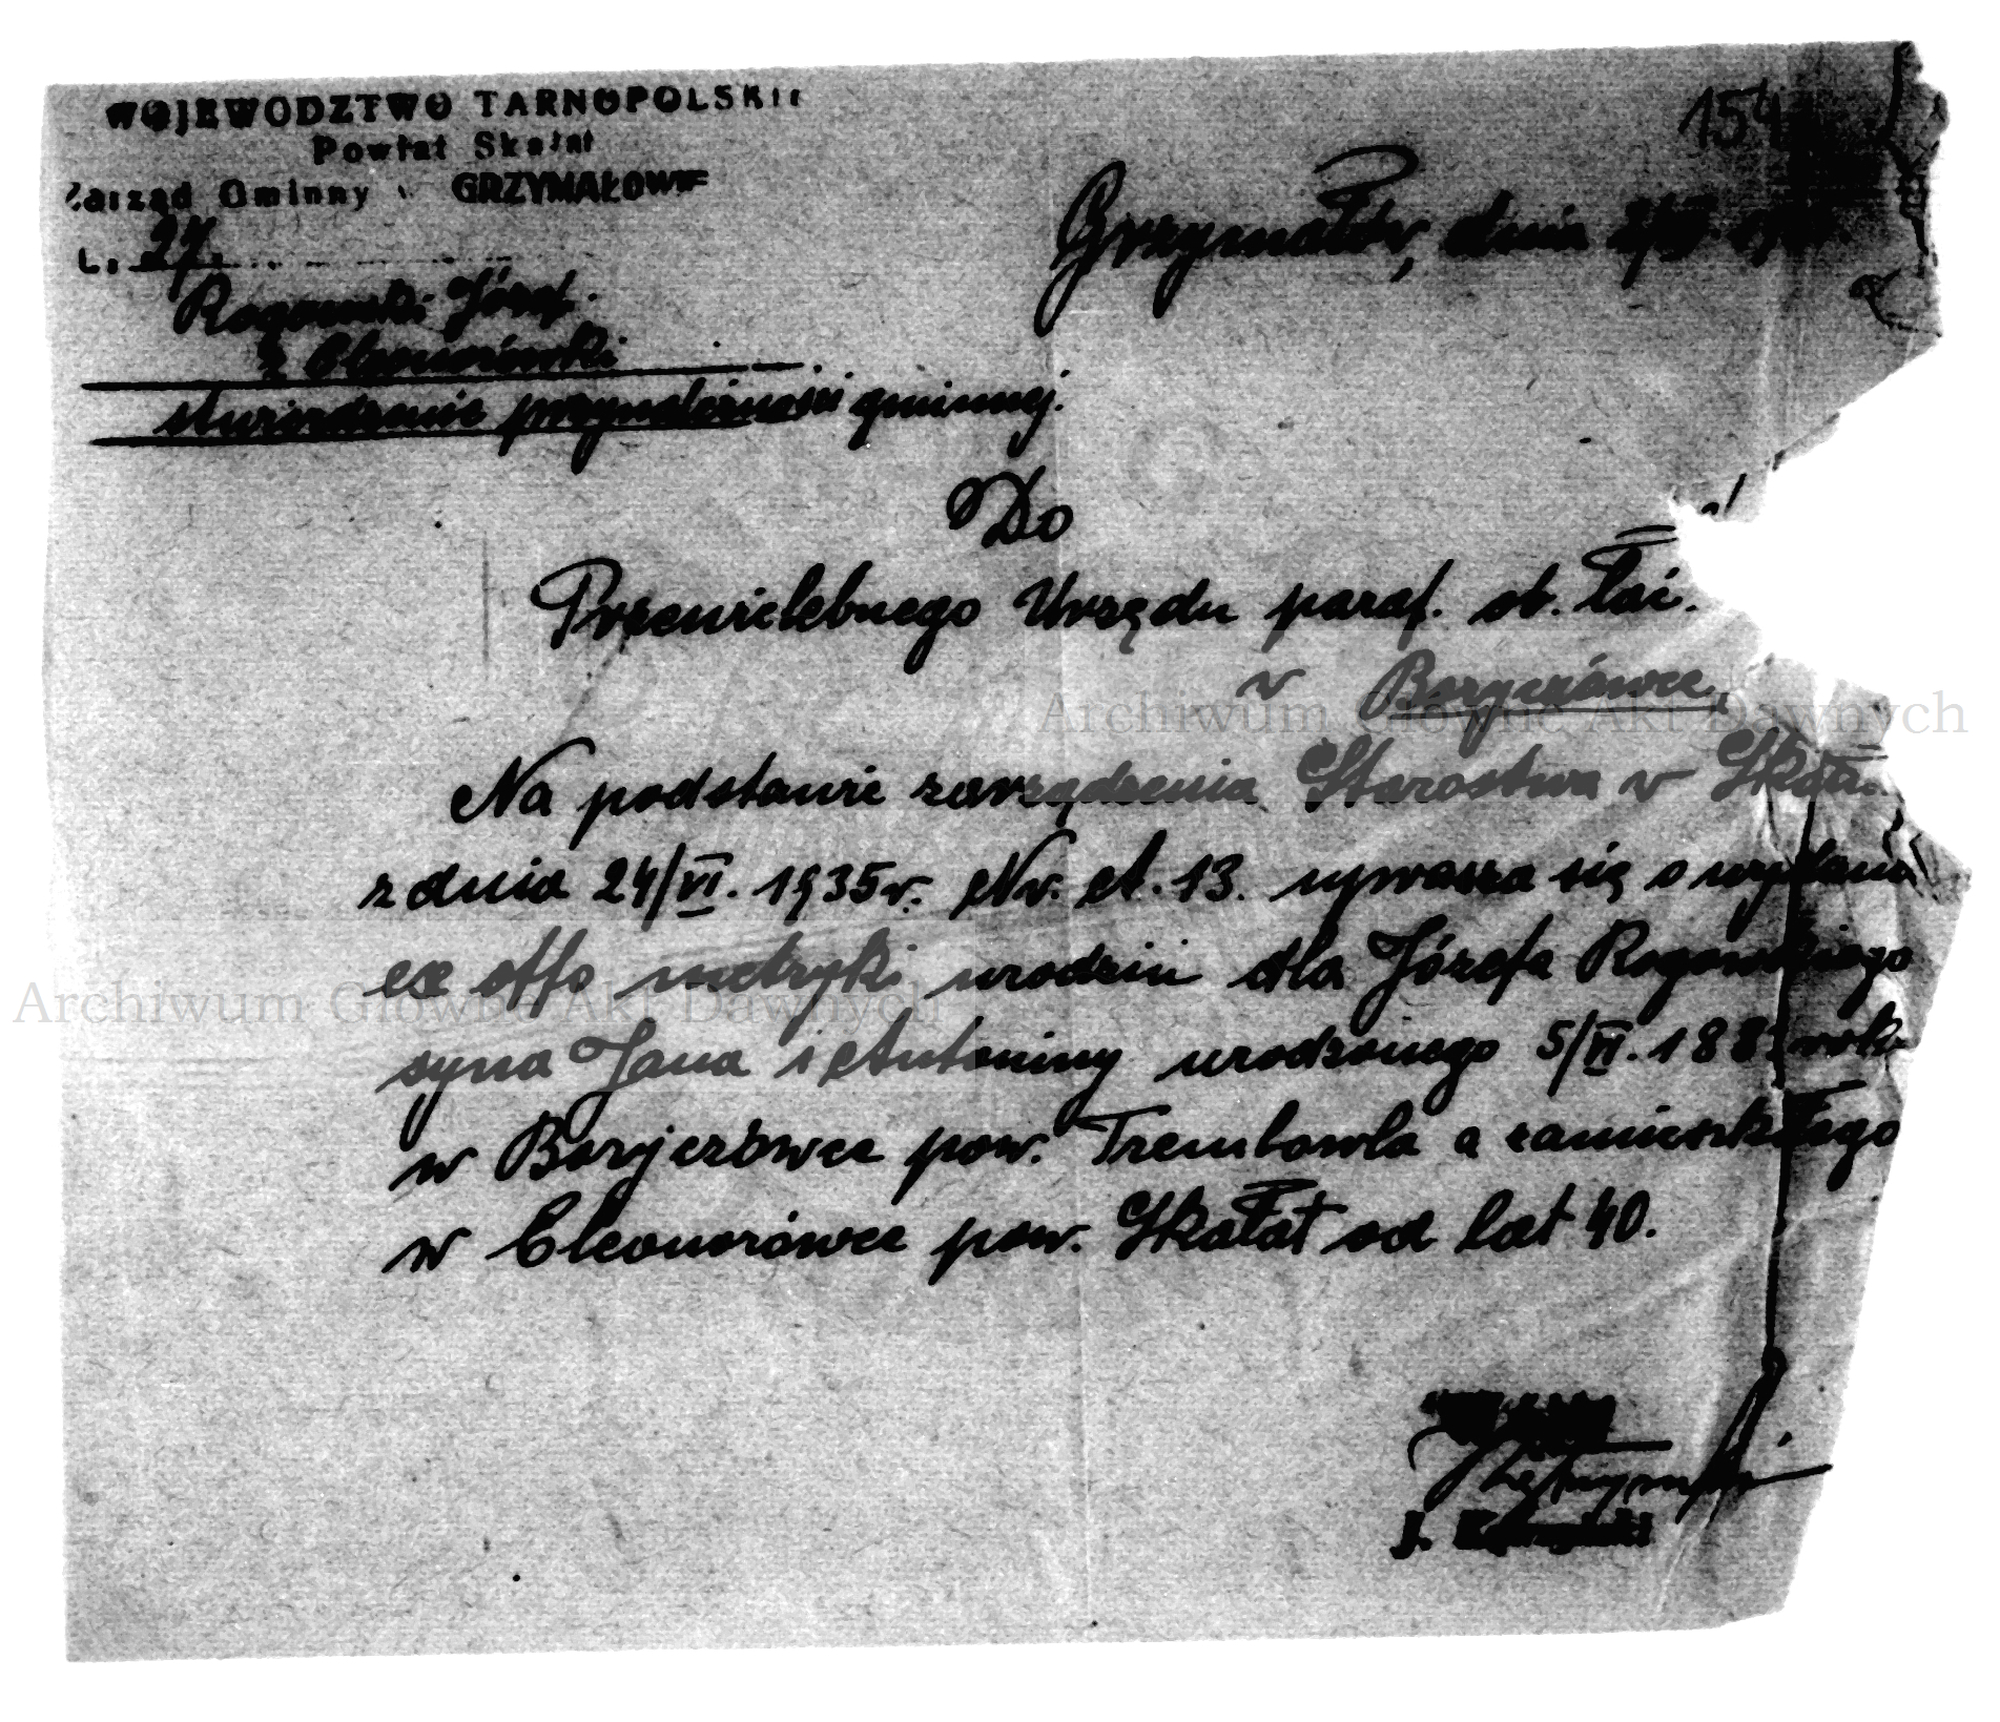 154
WOJEWODZTWO TARNOPOLSKIE
Powiat Skałat
Zarząd Gminny w GRZYMAŁOWIE
L. 27.
Grzymałów, dnia
Rogowski Józef.
z Eleonorówki
stwierdzenie przynależności gminnej.
Do
Przewielebnego Urzędu paraf. ob. łać.
w Boryczówce
Archiwum Główne Akt Dawnych
Na podstawie zarządzenia Starostwa w Skała
z dnia 24/VI. 1935 r. Nr. A. 13. uprasza się o wydanie
ex offo metryki urodzin dla Józefa Rogowskiego
Archiwum Główne Akt Dawnych
syna Jana i Antoniny urodzonego 5/VI. 188 rok
w Boryczówce pow. Trembowla a zamieszkałego
w Eleonorówce pow. Skałat od lat 40.
J.